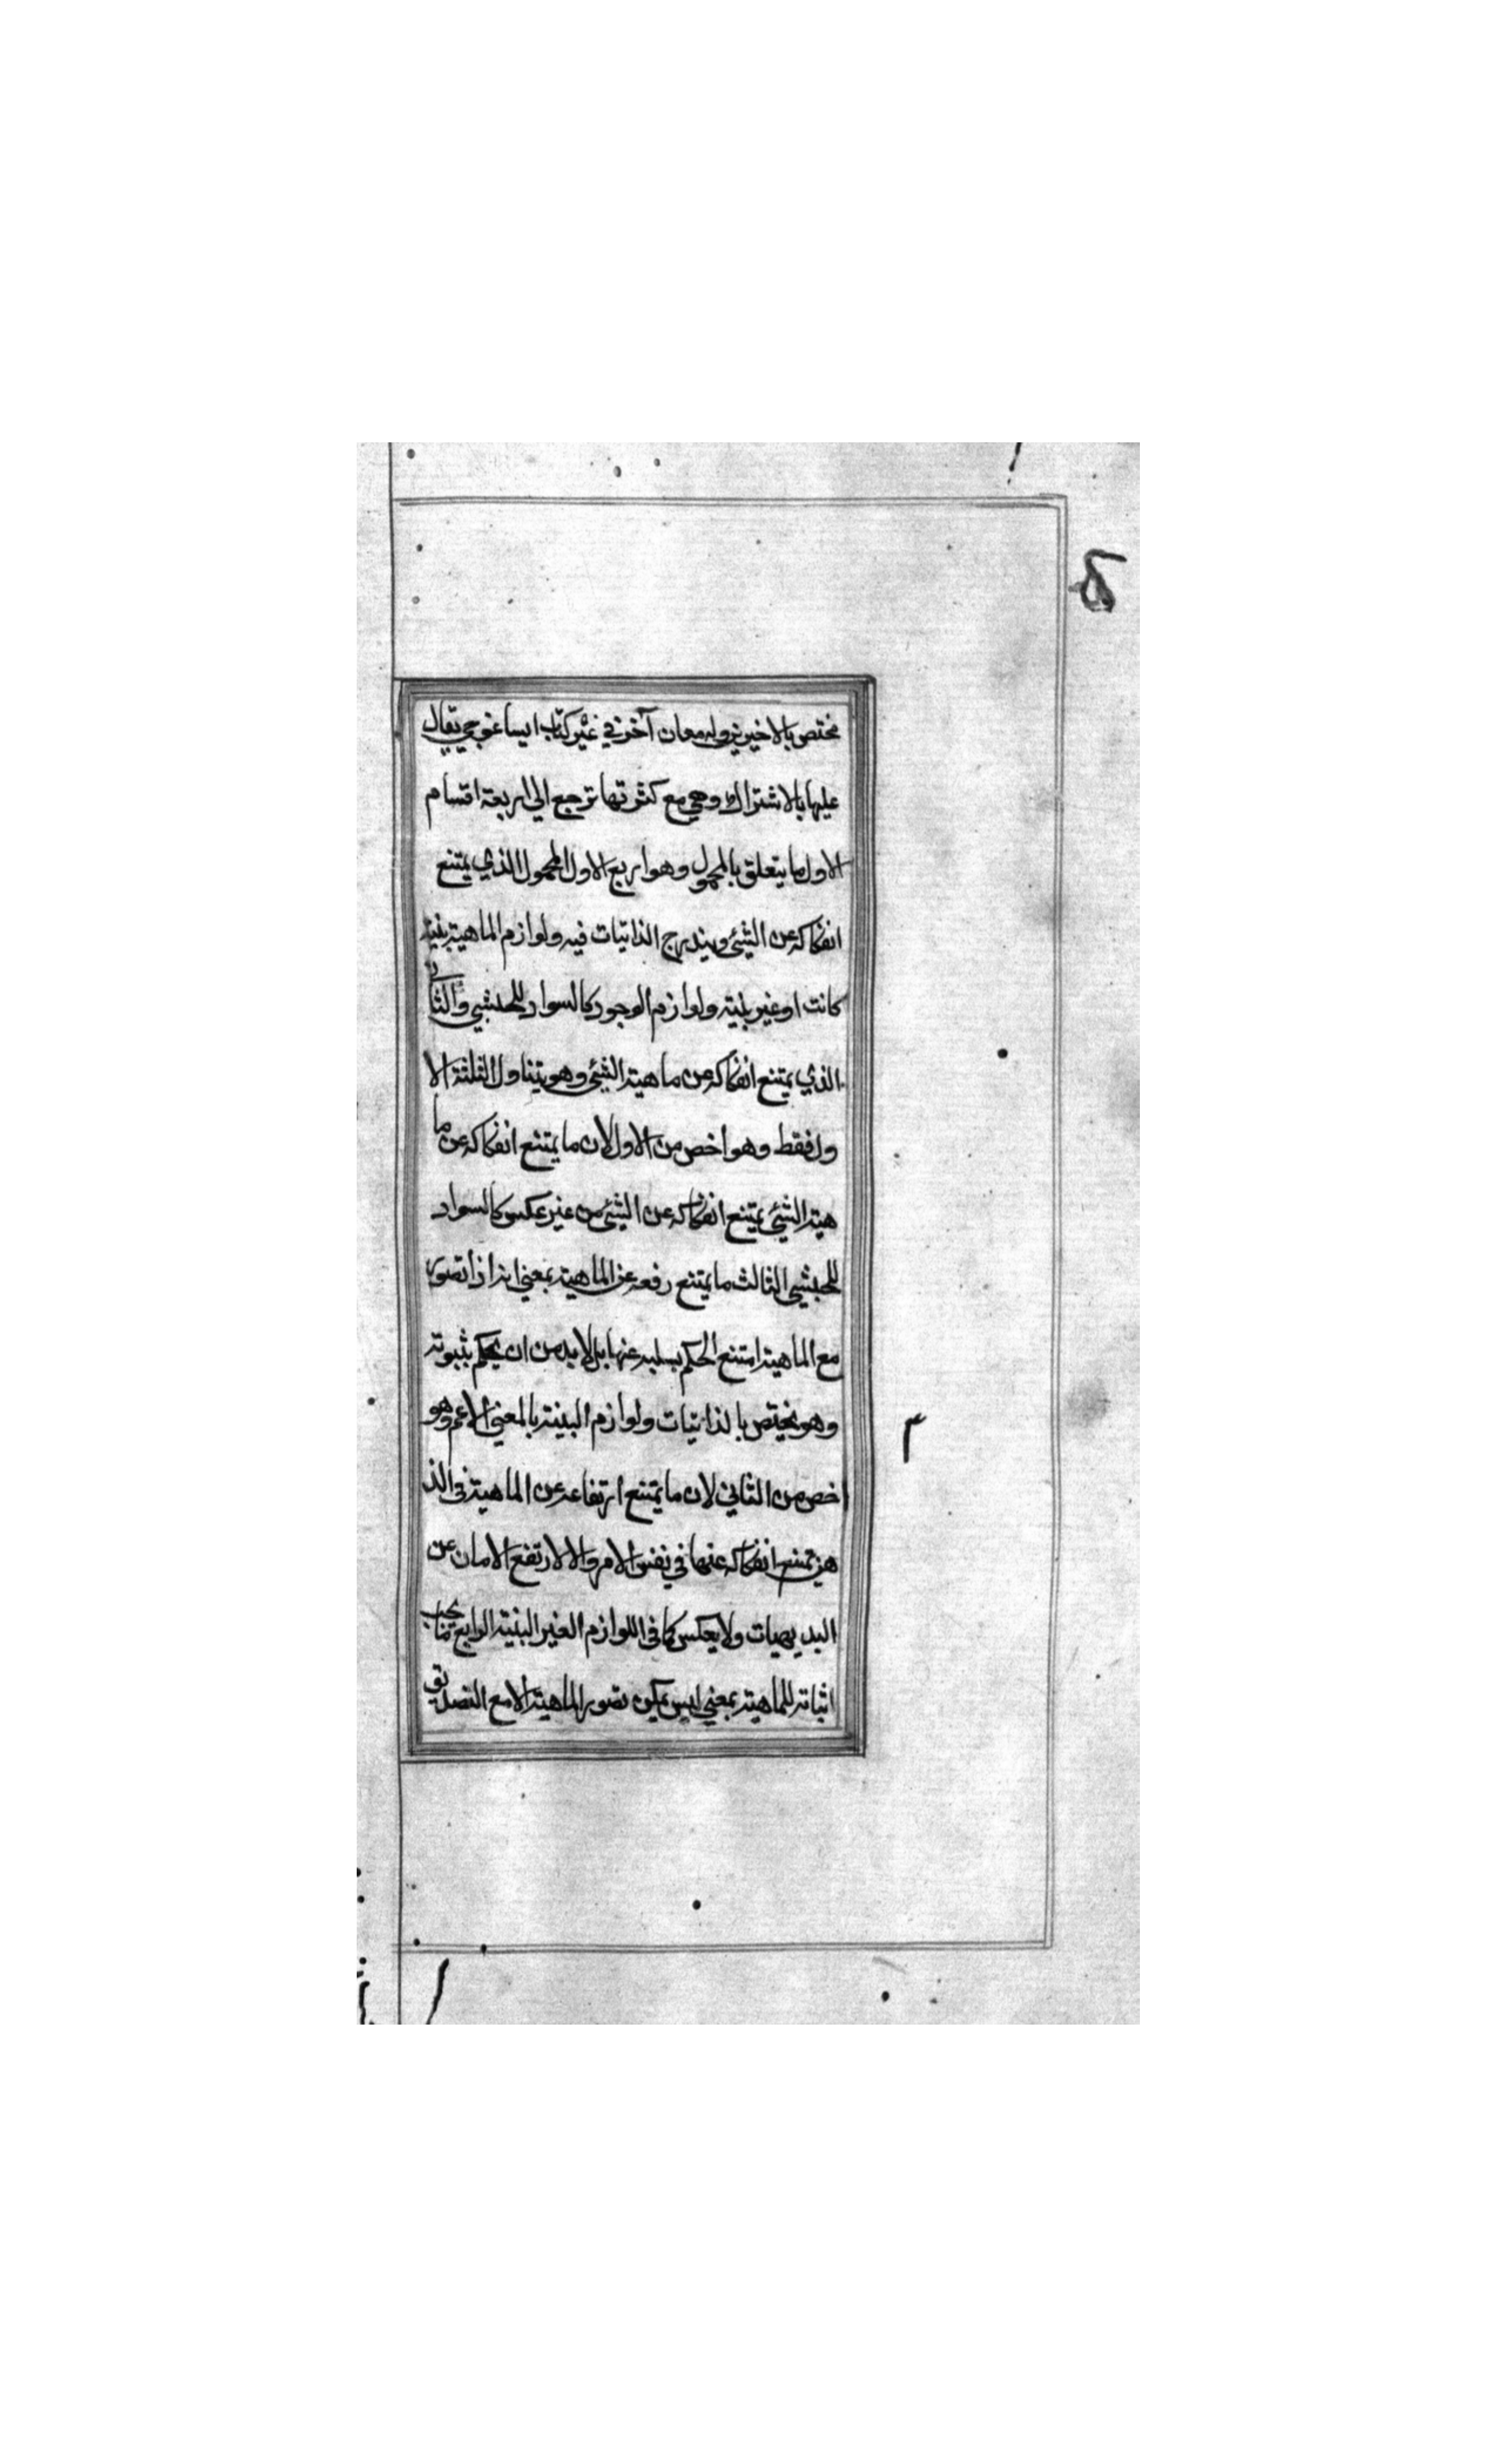 مختص بالاخيرين وله معان آخر في غير كتاب ايساغوجي يقال
عليها بالاشتراك وهي مع كثرتها ترجع الي اربعة اقسام
الاول ما يتعلق بالمحمول وهو اربع الاول المحمول الذي يمتنع
انفكاكه عن الشئي ويندرج الذاتيات فيه ولوازم الماهية بنية
كانت او غير بنية ولوازم الوجود كالسواد للحبشي والثاني
الذي يمتنع انفكاكه عن ماهية الشئي وهو يتناول الثلثة الا
ول فقط وهو اخص من الاول لان ما يمتنع انفكاكه عن ما
هية الشئي يمتنع انفكاكه عن الشئي من غير عكس كالسواد
للحبشي الثالث ما يمتنع رفعه عن الماهية بمعني انه اذا تصور
مع الماهية امتنع الحكم بسلبه عنها بل لا بد من ان يحكم بثبوته
وهو يختص بالذاتيات ولوازم البينة بالمعني الاعم وهو
اخص من الثاني لان ما يمتنع ارتفاعه عن الماهية في الذ
هن يمتنع انفكاكه عنها في نفس الامر والا لارتفع الامان عن
البديهيات ولا يعكس كما في اللوازم الغير البنية الرابع ما يجب
اثباته للماهية بمعني ليس يمكن تصور الماهية الا مع التصديق